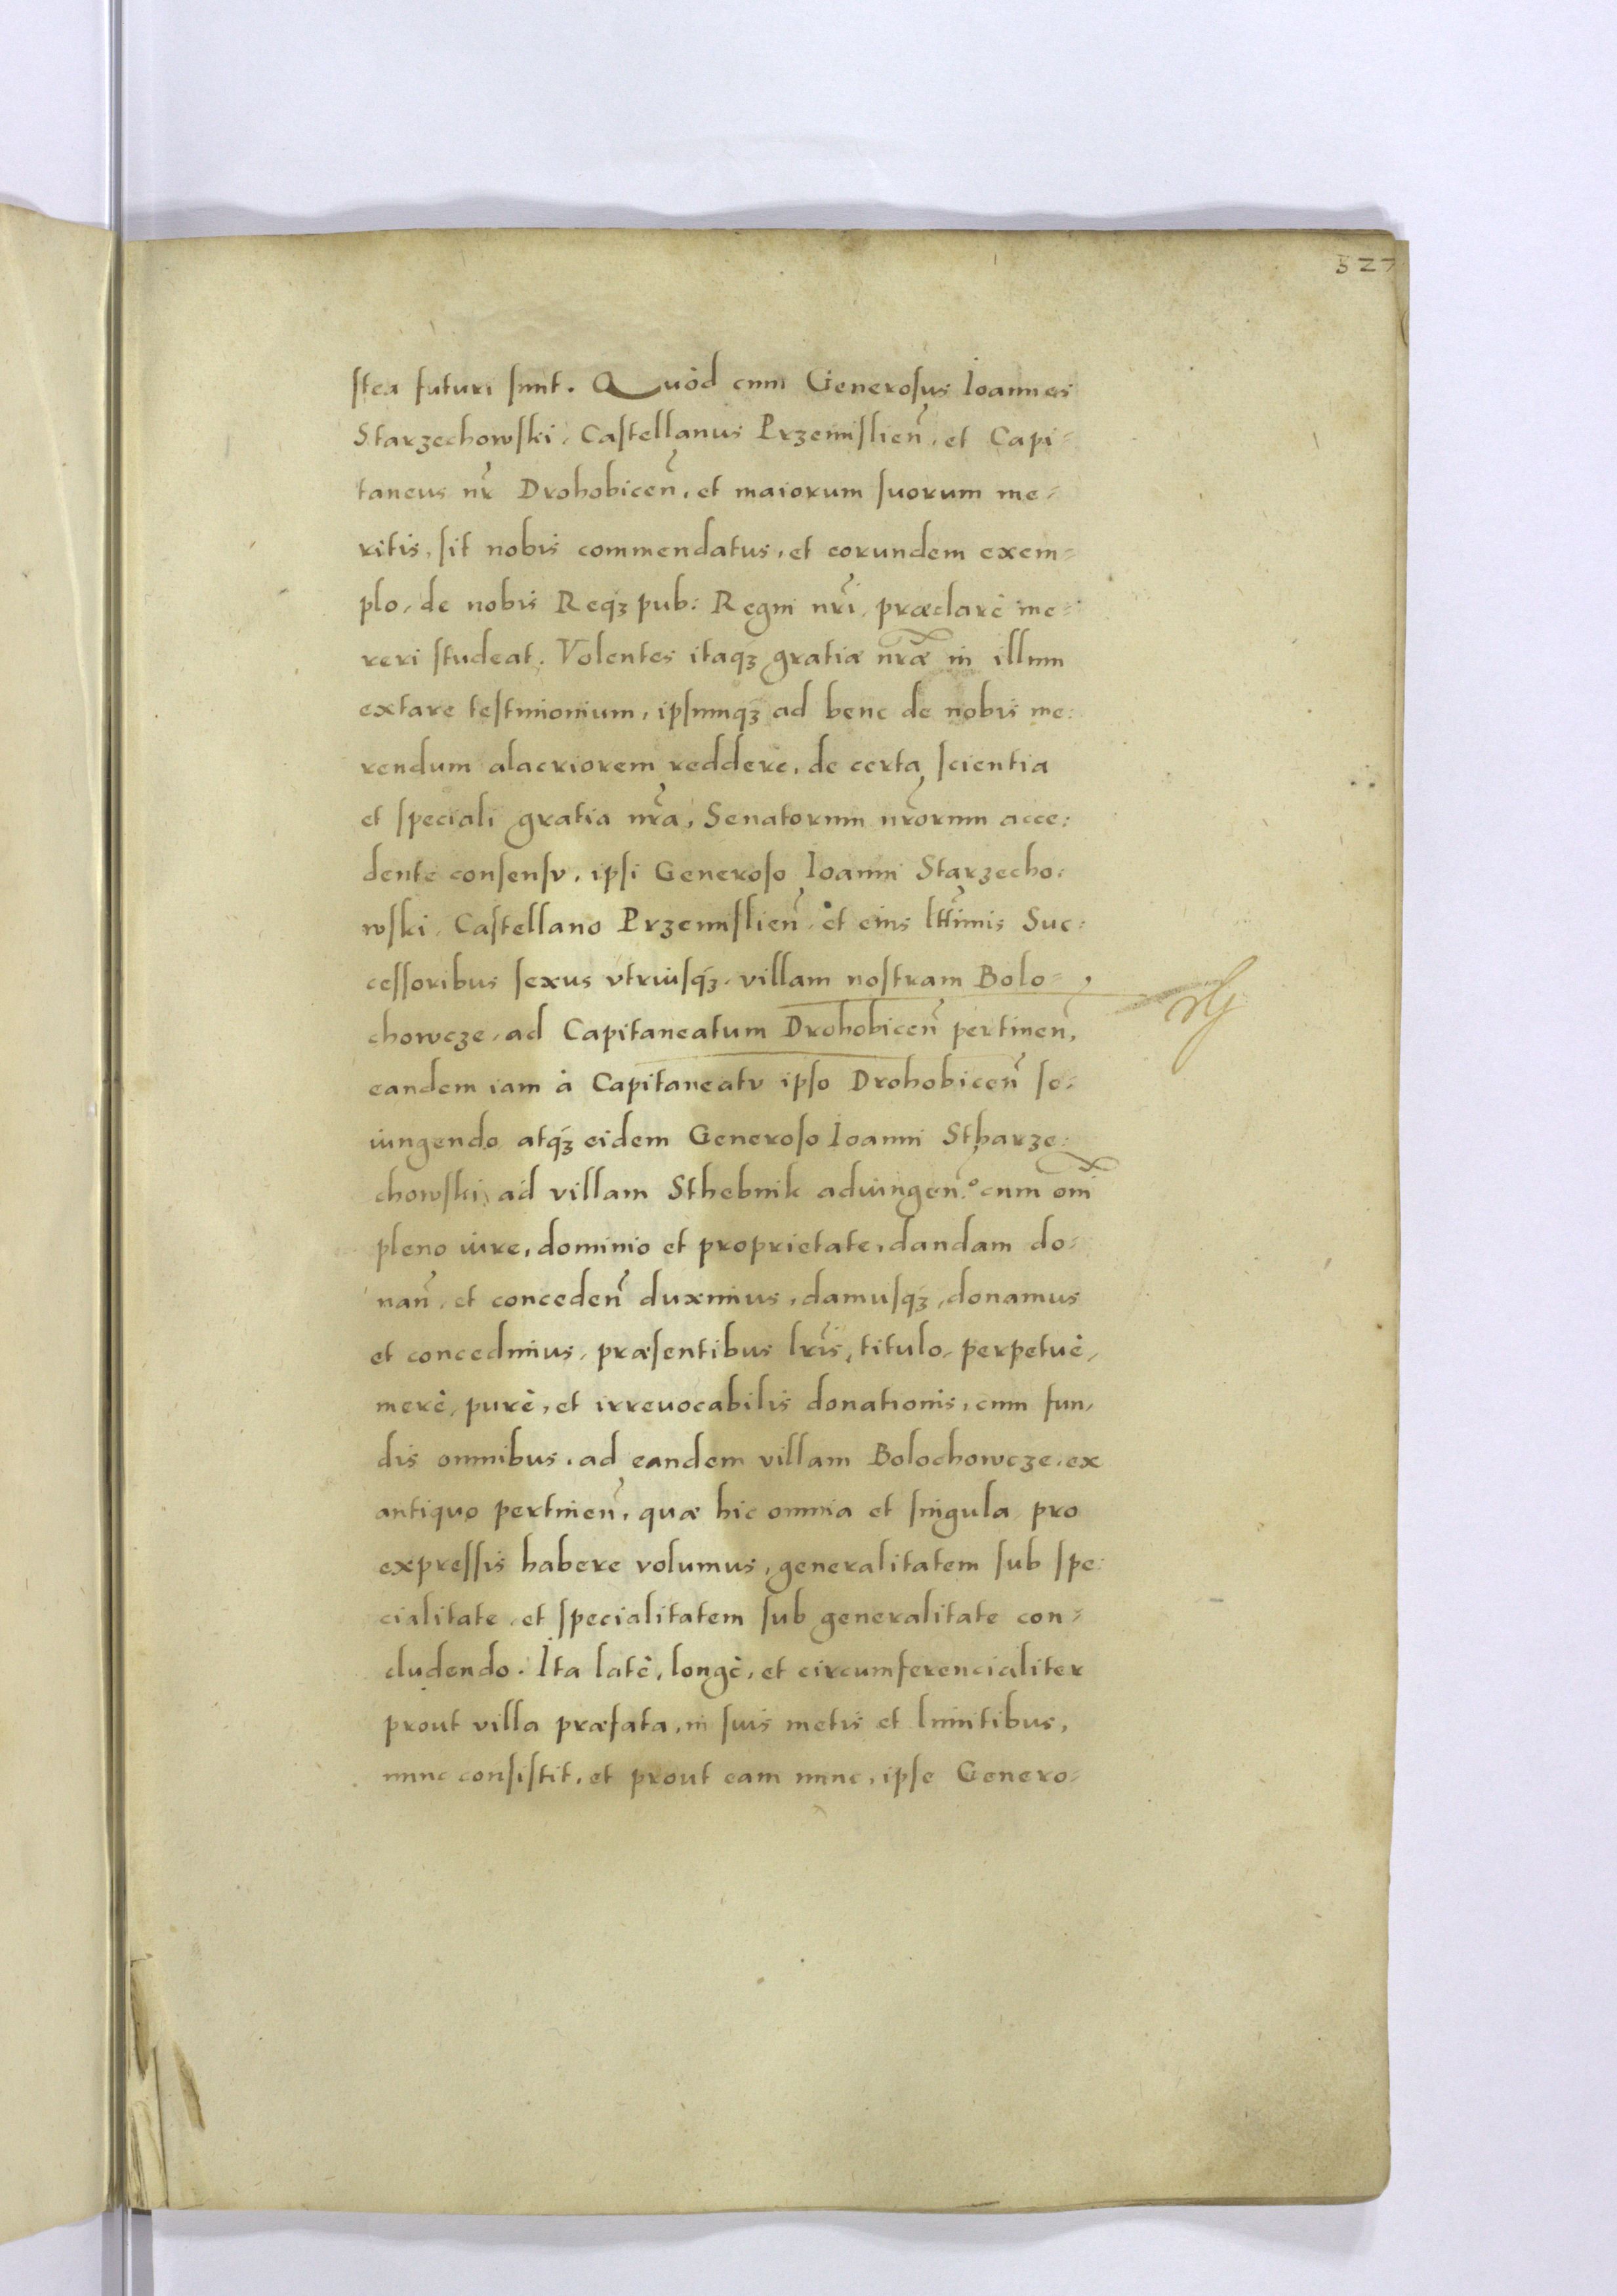 327
stea futuri sunt. Quòd cum Generosus Ioannes
Starzechowski, Castellanus Przemislien̄, et Capi-
taneus nr̄ Drohobicen̄, et maiorum suorum me-
ritis, sit nobis commendatus, et eorundem exem-
plo, de nobis Reqꝫ pub: Regni nr̄i, præclarè me-
reri studeat. Volentes itaqꝫ gratiæ nr̄æ in illum
extare testimonium, ipsumqꝫ ad bene de nobis me:
rendum alacriorem reddere, de certa scientia
et speciali gratia nr̄a, Senatorum nr̄orum acce:
dente consensv, ipsi Generoso Ioanni Starzecho:
wski, Castellano Przemislien̄, et eius ltt̄imis Suc:
cessoribus sexus vtriusqꝫ, villam nostram Bolo-
chowcze, ad Capitaneatum Drohobicen̄ pertinen̄,
eandem iam à Capitaneatv ipso Drohobicen̄ se-
iungendo atqꝫ eidem Generoso Ioanni Stharze:
chowski, ad villam Sthebnik adiungen̄. cum om̄i
pleno iure, dominio et proprietate, dandam do-
nan̄, et conceden̄ duximus, damusqꝫ, donamus
et concedimus, præsentibus lr̄is, titulo, perpetuè,
merè, purè, et irreuocabilis donationis, cum fun,
dis omnibus, ad eandem villam Bolochowcze, ex
antiquo pertinen̄, quæ hic omnia et singula pro
expressis habere volumus, generalitatem sub spe:
cialitate, et specialitatem sub generalitate con-
cludendo. Ita latè, longè, et circumferencialiter
prout villa præfata, in suis metis et limitibus,
nunc consistit, et prout eam nunc, ipse Genero-